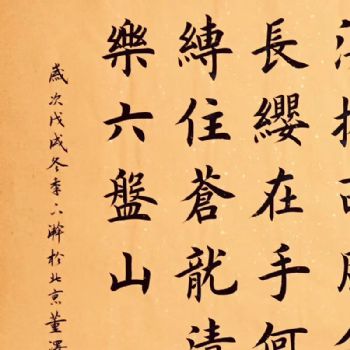 長纓在手何
縛住蒼龍清
樂六盤山
歲次戊戌冬季於北京董